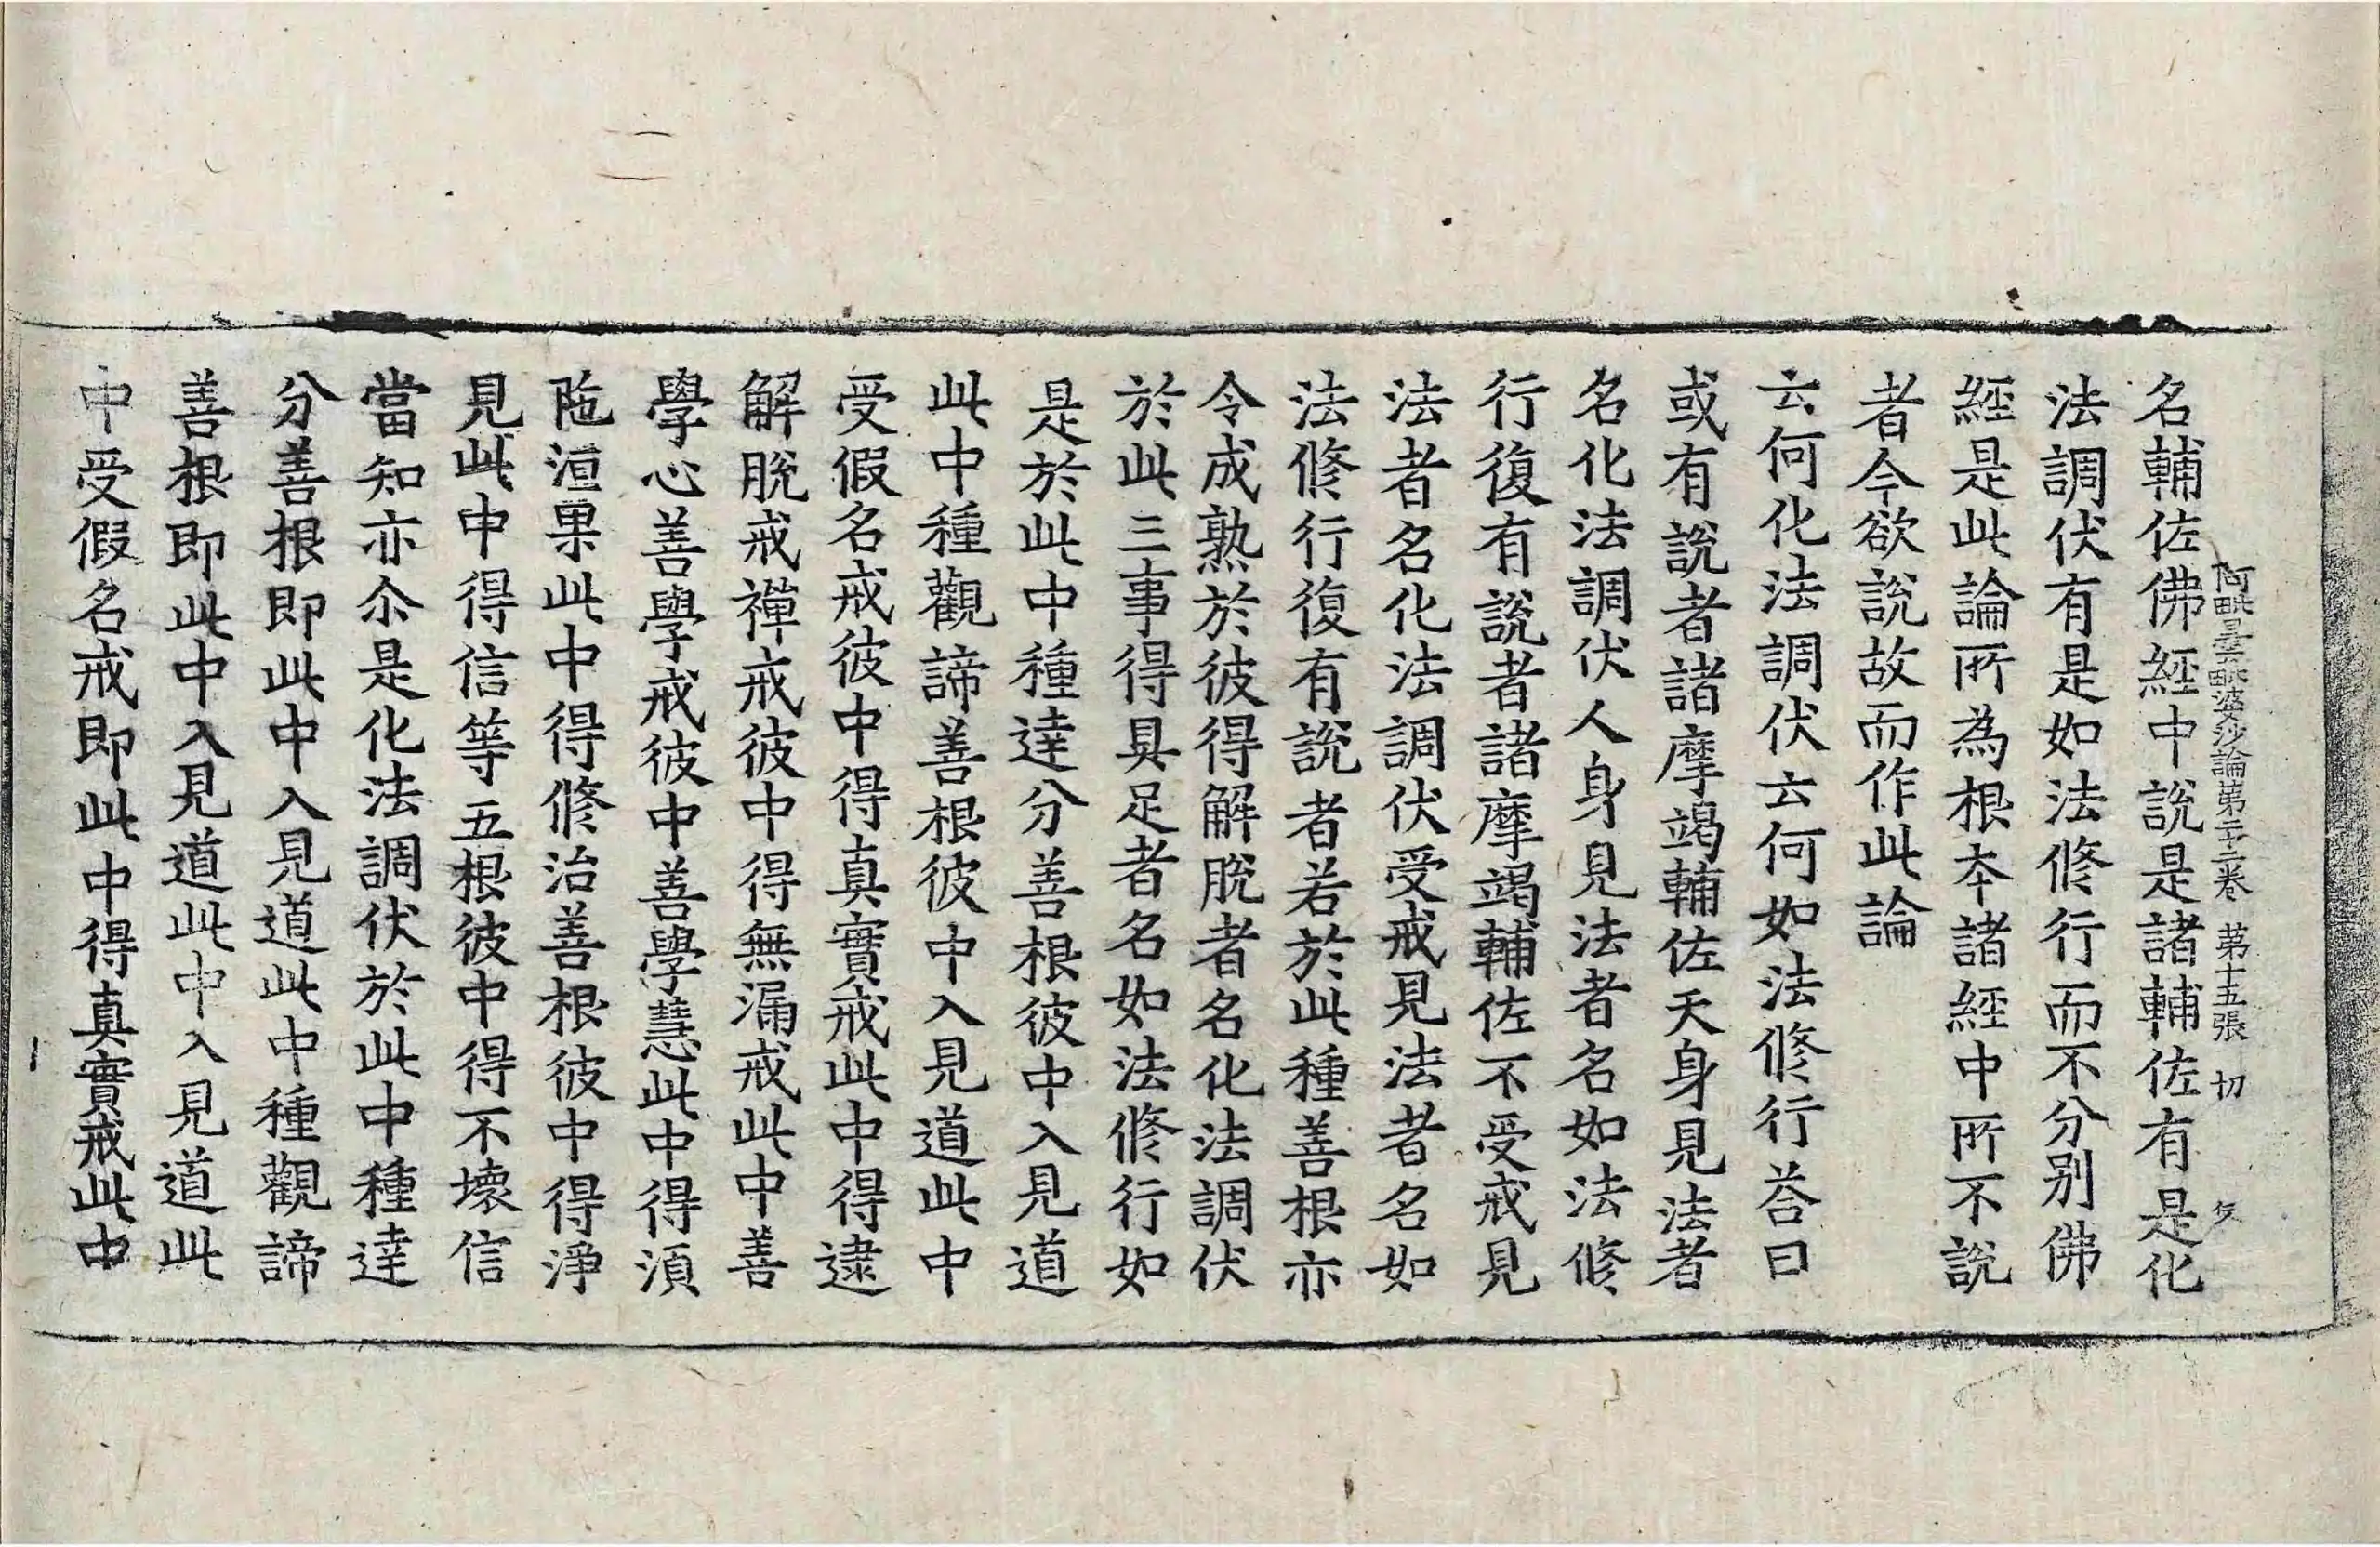 阿毗曇毗婆沙論第二十二卷 第十五張 切
名輔佐佛經中說是諸輔佐有是化
法調伏有是如法修行而不分別佛
經是此論所為根本諸經中所不說
者今欲說故而作此論
云何化法調伏云何如法修行荅曰
或有說者諸摩竭輔佐天身見法者
名化法調伏人身見法者名如法修
行復有說者諸摩竭輔佐不受戒見
法者名化法調伏受戒見法者名如
法修行復有說者若於此種善根亦
令成熟於彼得解脫者名化法調伏
於此三事得具足者名如法修行如
是於此中種達分善根彼中入見道
此中種觀諦善根彼中入見道此中
受假名戒彼中得真實戒此中得逮
解脫戒禪戒彼中得無漏戒此中善
學心善學戒彼中善學慧此中得湏
陁洹果此中得修治善根彼中得淨
見此中得信等五根彼中得不壞信
當知亦尒是化法調伏於此中種達
分善根即此中入見道此中種觀諦
善根即此中入見道此中入見道此
中受假名戒即此中得真實戒此中